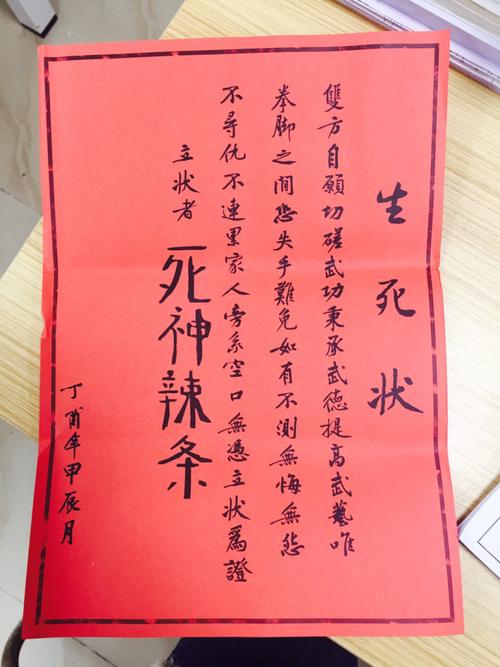 生死状
雙方自願切磋武功秉承武德提高武藝唯
拳脚之間恐失手難免如有不測無悔無怨
不尋仇不連累家人旁系空口無憑立状為證
立状者 死神辣条
丁酉年甲辰月